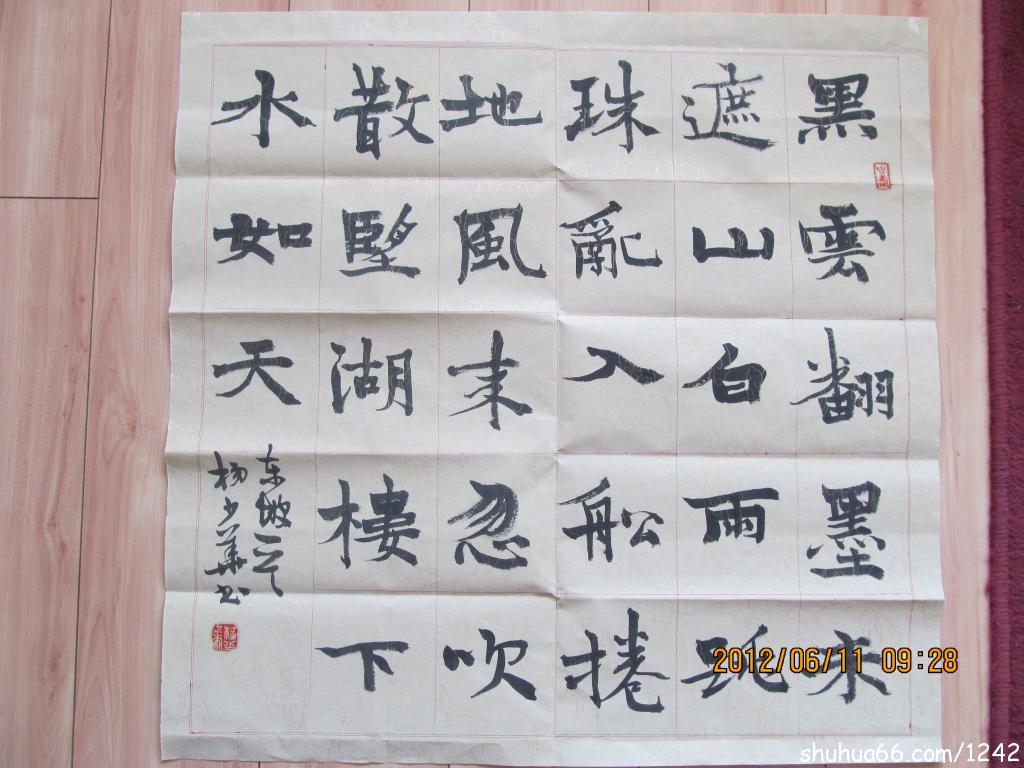 黑雲翻墨未
遮山白雨跳
珠亂入船捲
地風来忽吹
散望湖樓下
水如天
东坡
杨少華书
2012/06/11 09:28
shuhua66.com/1242